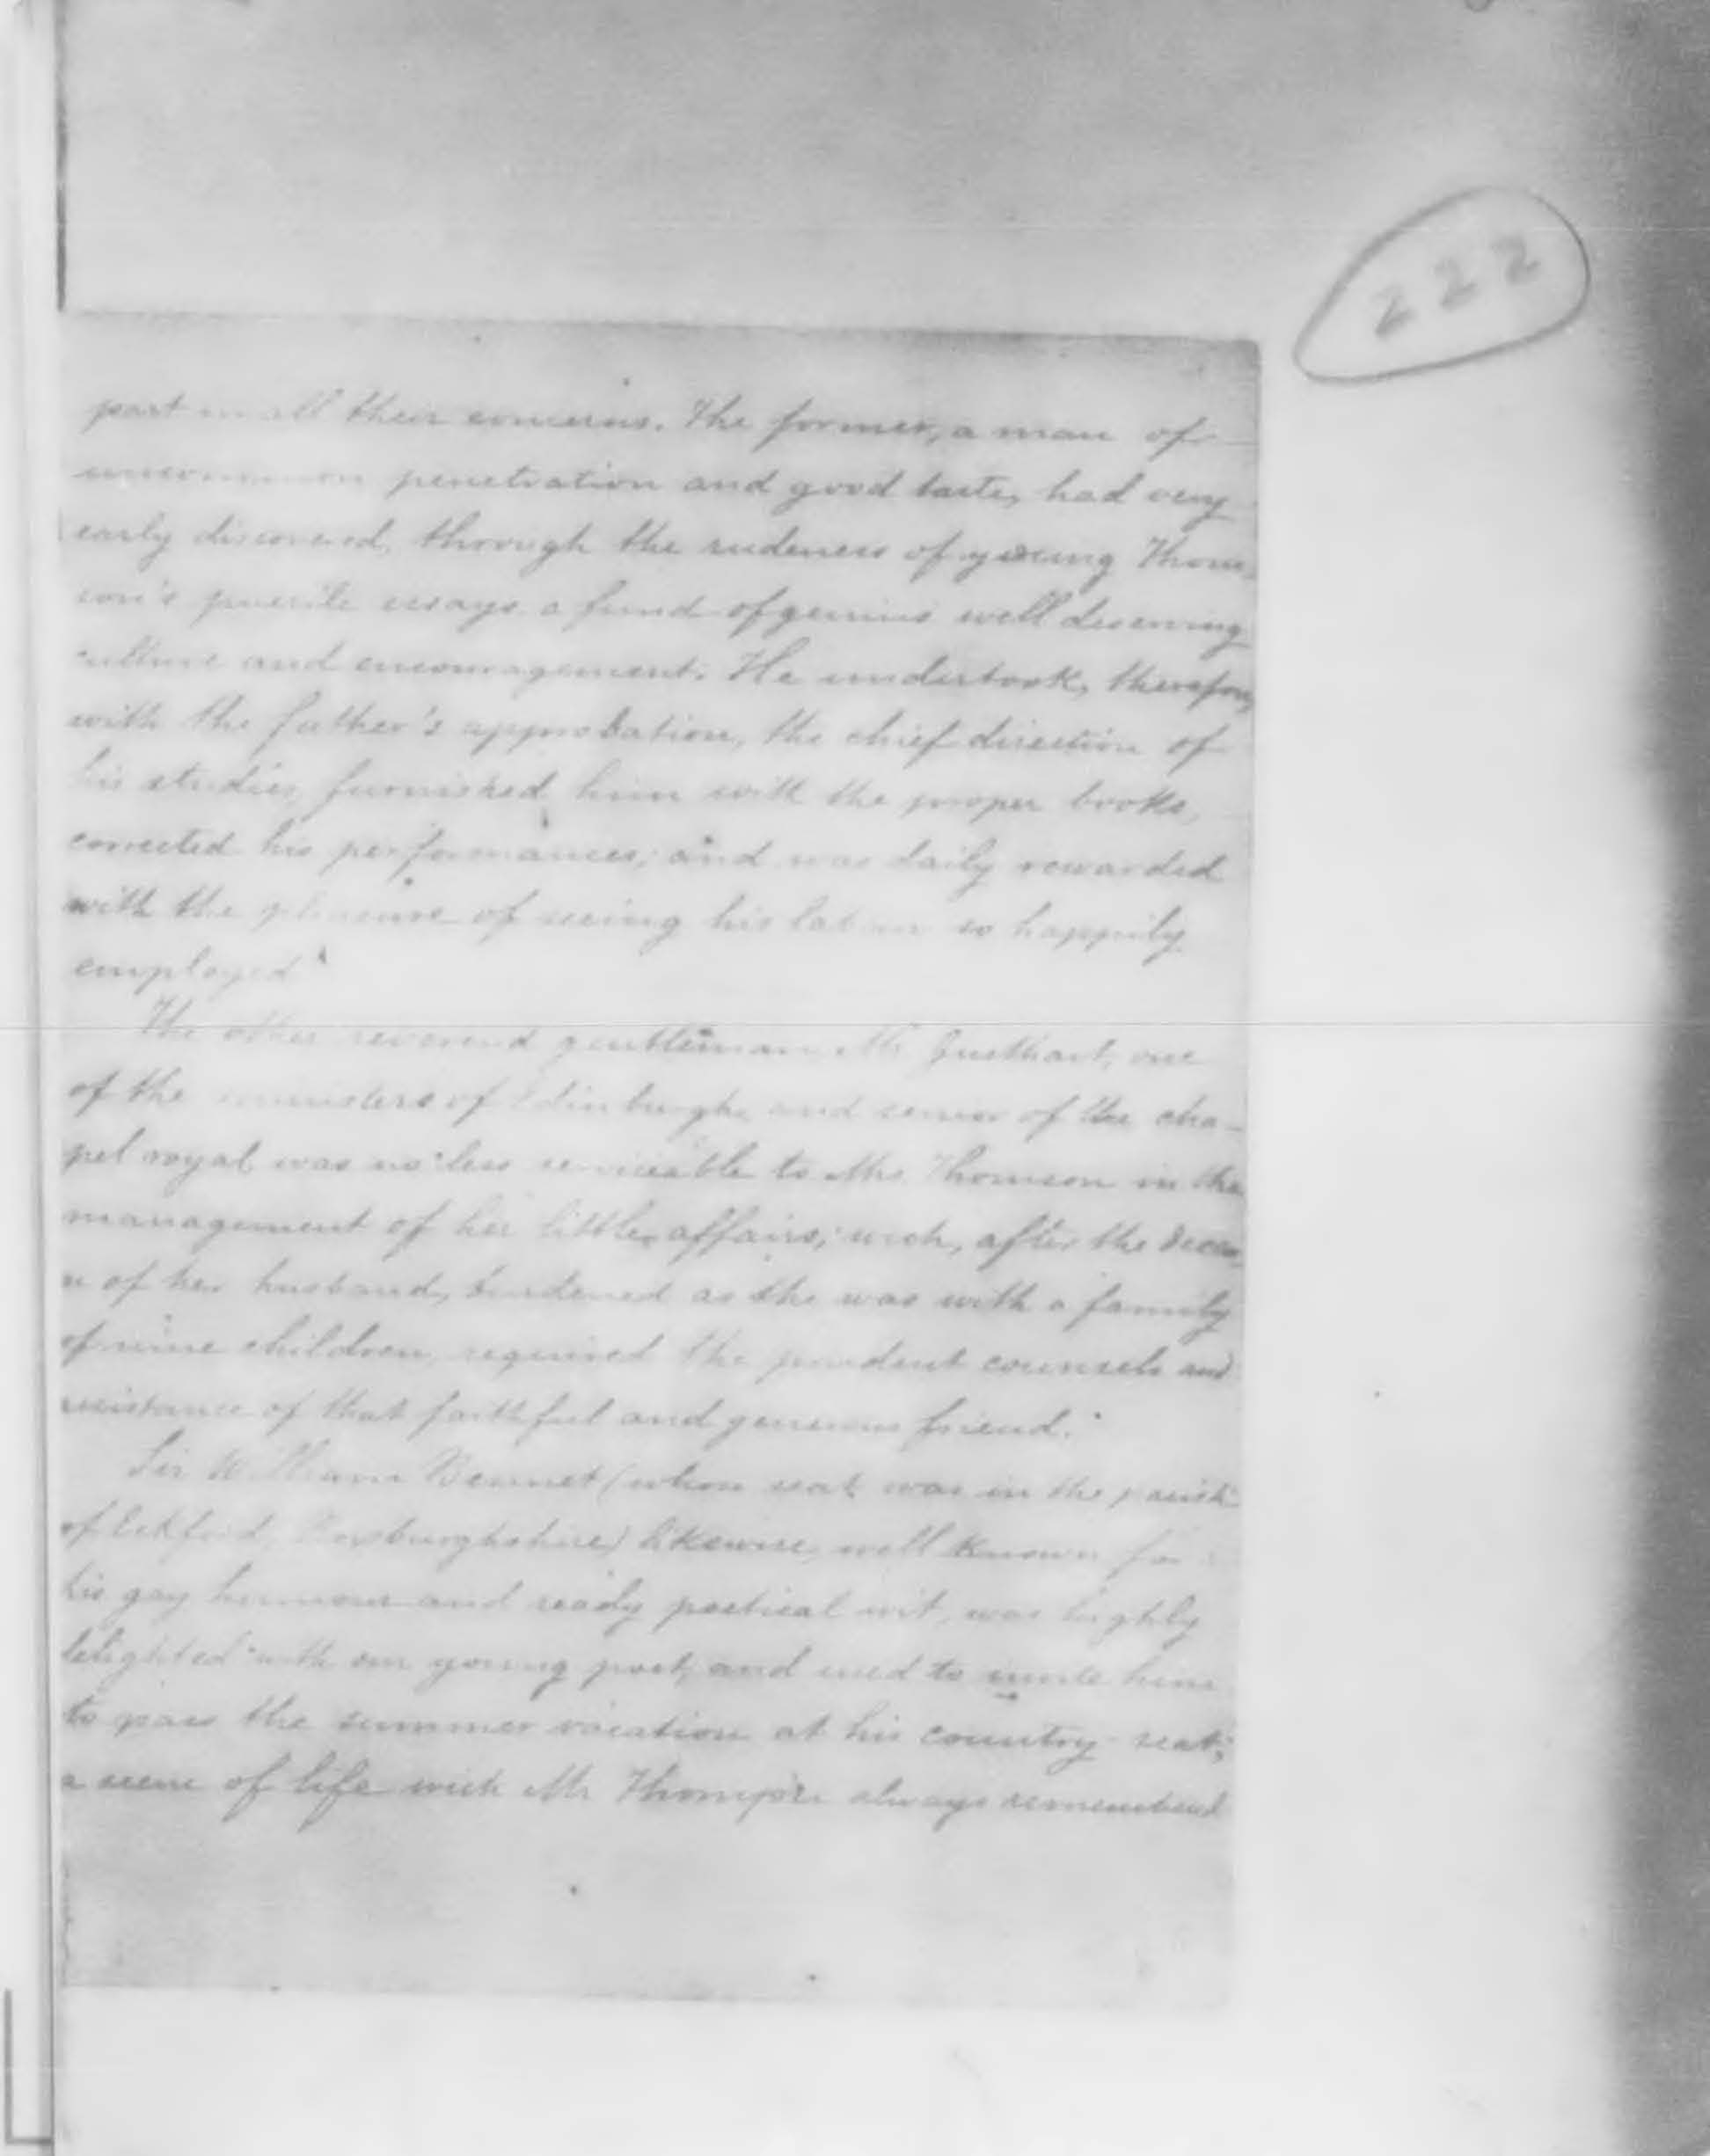 222
part in all their concerns. The former, a man of
uncommon penetration and good taste, had very
early discovered, through the rudeness of young Thom-
son's puerile essays a fund of genius well deserving
culture and encouragement. He undertook, therefore,
with the father's approbation, the chief direction of
his studies, furnished him with the proper books,
corrected his performances; and was daily rewarded
with the pleasure of seeing his labour so happily
employed"
The other reverend gentleman Mr Gusthart, one
of the ministers of Edinburgh, and senior of the cha-
pel royal was no less serviceable to Mrs Thomson in the
management of her little affairs; wich, after the decea-
se of her husband, burdened as she was with a family
of nine children, required the prudent counsels and
assistance of that faithful and generous friend."
Sir William Bennet (whose seat was in the parish
of Eckford, Roxburghshire) likewise, well known for
his gay humour and ready poetical wit, was highly
delighted with our young poet, and used to invite him
to pass the summer vacation at his country seat;
a scene of life wich Mr Thomson always remembered